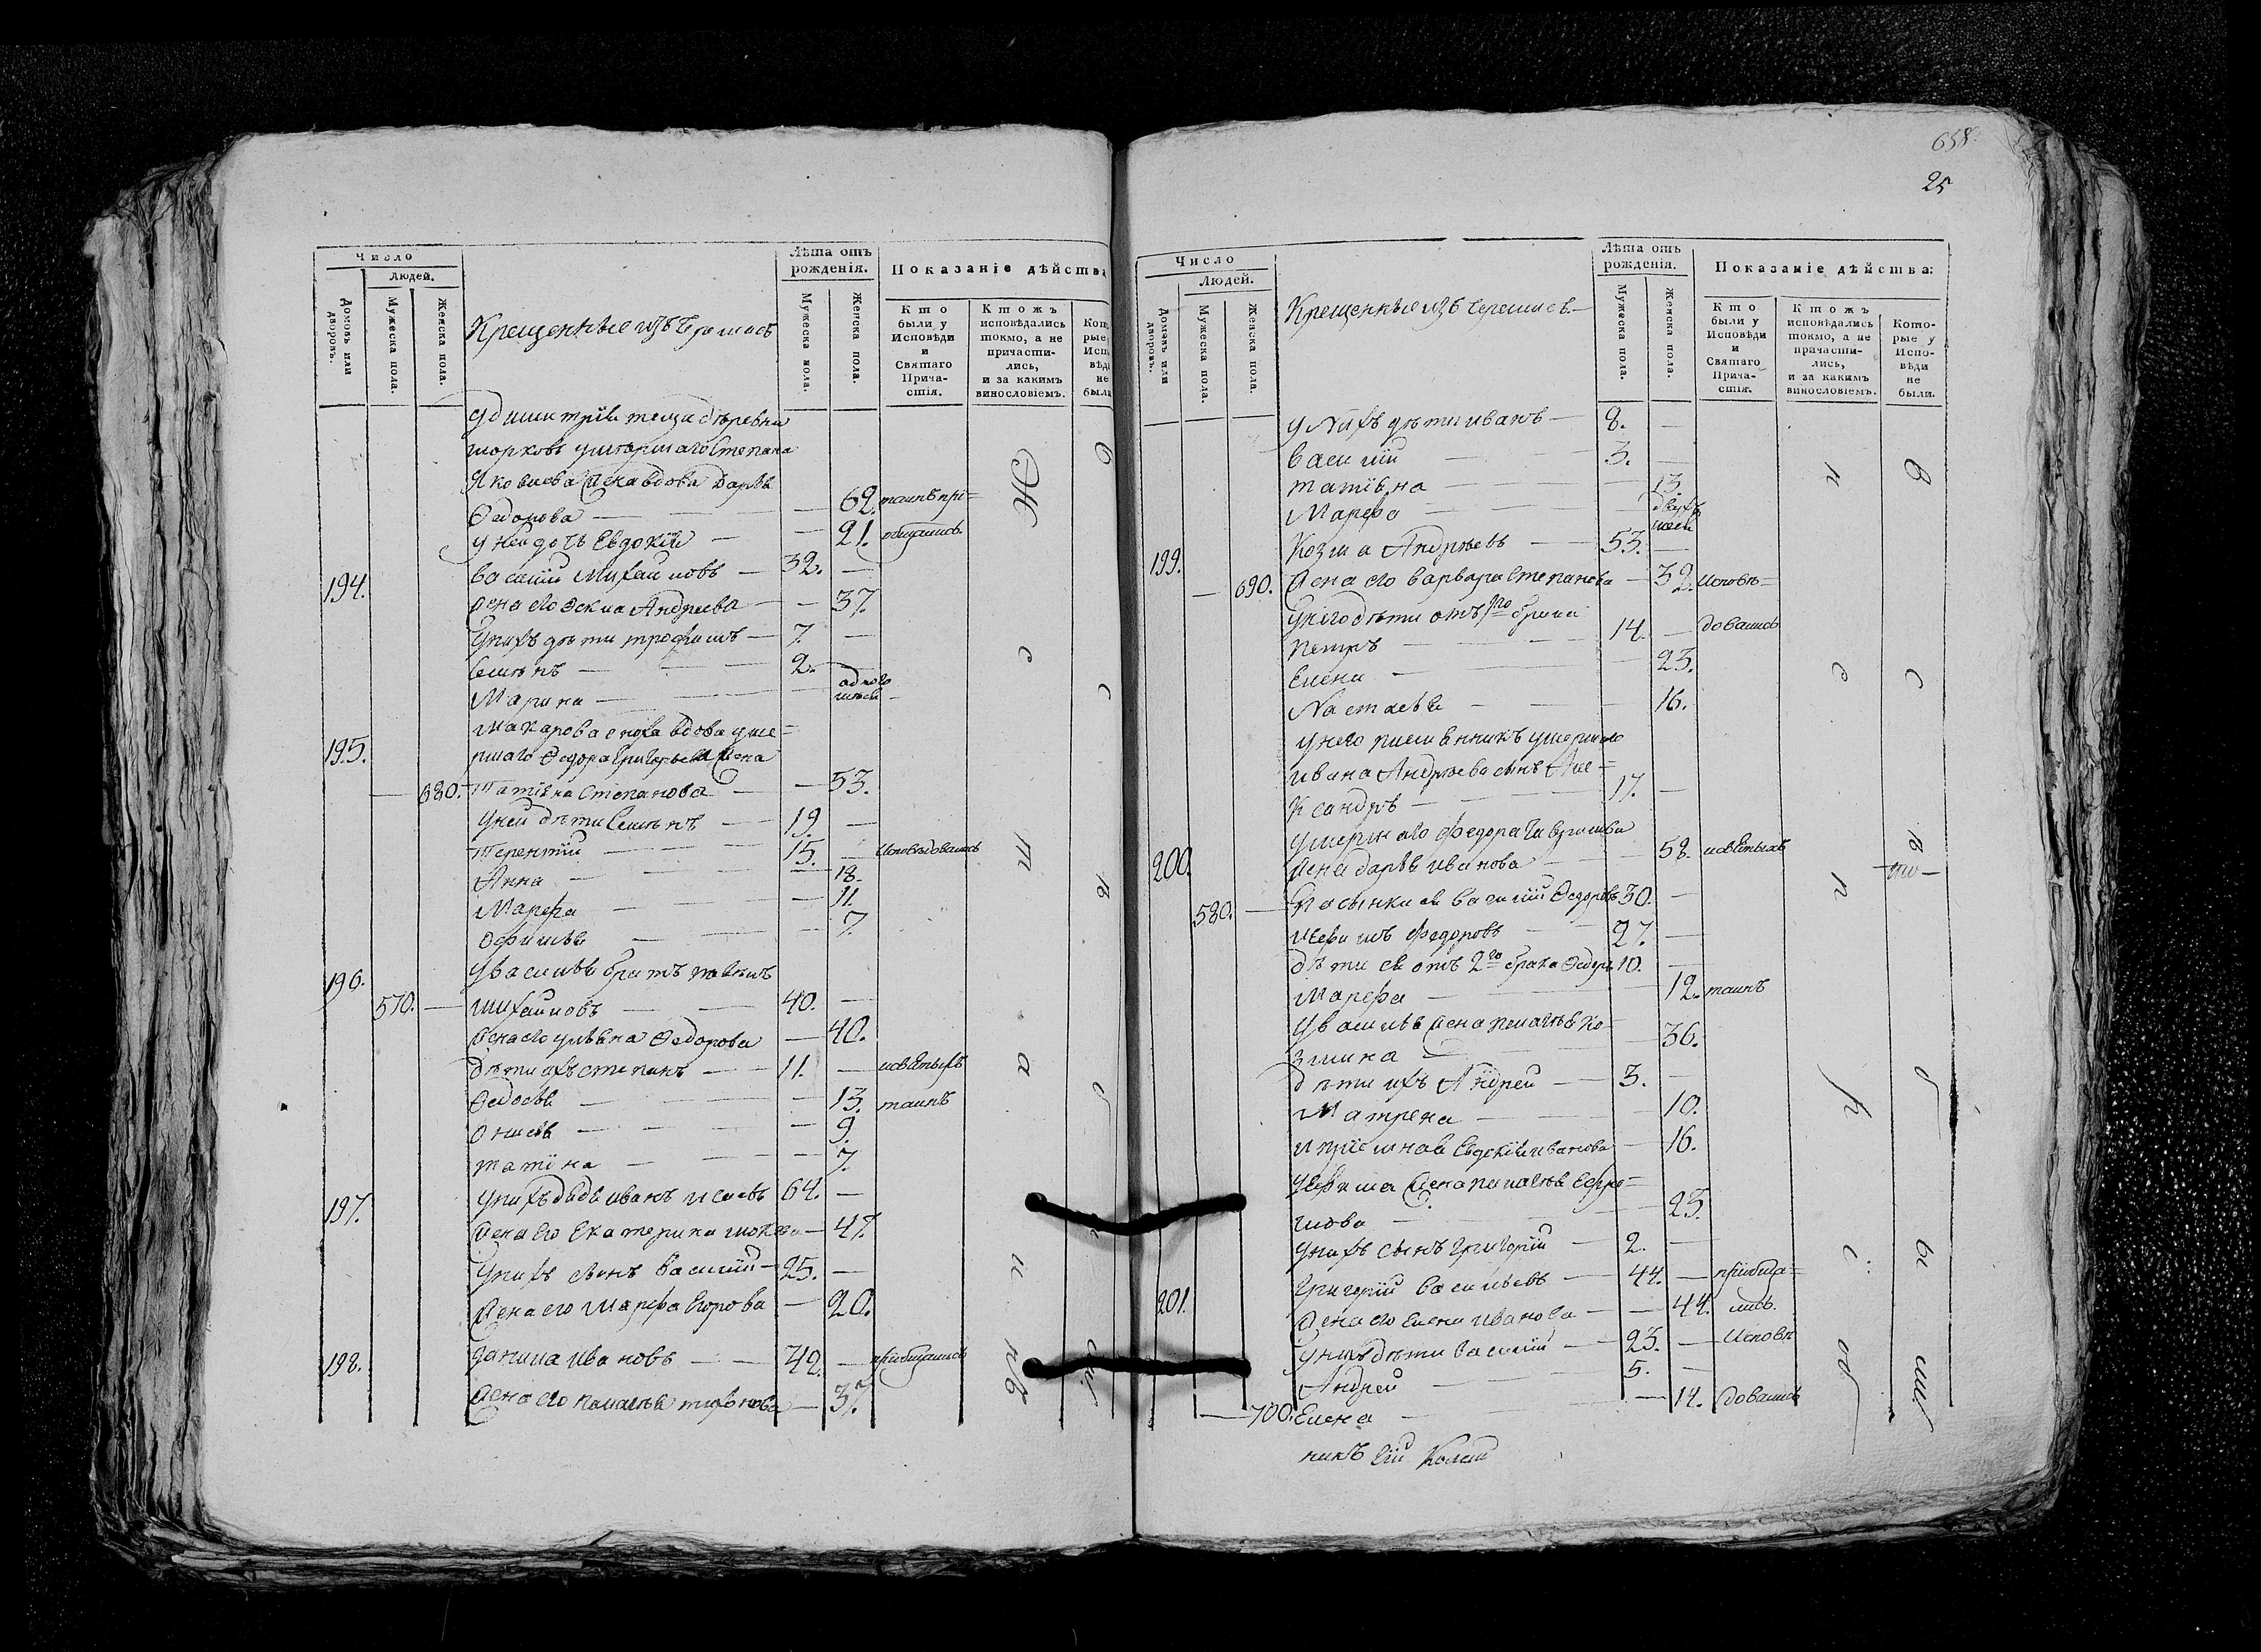 Число
Людей.
Домовъ или дворовъ.
Мужеска пола.
Женска пола.
Крещенные изъ Черемисъ
Лѣта отъ рожденія.
Мужеска пола.
Женска пола.
Показаніе дѣйства
Кто были у Исповѣди и Святаго Прича-стія.
Ктожъ исповѣдались токмо, а не причасти-лись, и за какимъ винословіемъ.
Кото рые Исп вѣд не был
У димитрія теща деревни
умершаго Степана
Яковлева жена вдова Дарья
Федотова — — 62. таинъ прі=
у ней дочь Евдокія — — 21. общались.
194. Василій Михайловъ — 32. —
жена его Андреева — — 37.
У нихъ дѣти трофимъ — 7. —
Семенъ — — — 2. —
Марина — — — одного мѣся
195. Макарова сноха вдова уме=
ршаго Федора Григорьева жена
— 680. Татіяна Степанова — — 53.
У ней дѣти Семенъ — 19. —
Терентій — — 15. — исповѣдовались
Анна — — — 18.
Марфа — — — 11.
Офимья — — — 7.
196. У василья братъ
570. — Михайловъ — — 40. —
жена его ульяна Федорова — 40.
дѣти ихъ степанъ — — 11. — и святыхъ
Федосья — — — 13. таинъ
Онисья — — — — 9.
татіана — — — 7.
197. У нихъ дядя иванъ 64. —
жена Его Екатерина — 47.
У нихъ сынъ василій — 25. —
Жена его Марфа Егорова — 20.
198. Данила Ивановъ — — 42. — пріобщались
жена его пелагея — 37.
658.
25
Число
Людей.
Домовъ или дворовъ.
Мужеска пола.
Женска пола.
Крещенные изъ Черемисъ. —
Лѣта отъ рожденія.
Мужеска пола.
Женска пола.
Показаніе дѣйства:
Кто были у Исповѣди и Святаго Прича-стія.
Ктожъ исповѣдались токмо, а не причасти-лись, и за какимъ винословіемъ.
Кото-рые у Испо-вѣди не были.
У нихъ дѣти иванъ — 8. —
василій — — 3. —
татіяна — — — 13
Марфа — — — двухъ
199. Козма Андрѣевъ — — 53. —
— 690. жена его варвара Степанова — 39. Исповѣ=
У него дѣти отъ 1го брака
петръ — — — 14. — довались
Елена — — — 23.
Настасья — — — 16.
у него племянникъ умершаго
ивана Андрѣева сынъ Але=
ксандръ — — 17. —
200. Умершаго Федора Гаврилова
жена дарья иванова — — 58. и святыхъ
580. — Пасынки ея василій Федоровъ 30. —
Федоровъ — 27. —
дѣти ея отъ 2го брака Федоръ 10. —
Марфа — — 12. таинъ
У василья жена пелагѣя Ко=
змина — — 36.
дѣти ихъ Андрей — — 3. —
Матрена — — — 10.
и пріемная Евдокія иванова — 16.
жена пелагѣя Ефре=
мова — — — 23.
У нихъ сынъ григорій — 2. —
201. Григорій васильевъ — 44. — пріобща=
жена его Елена иванова — — 44. лись.
У нихъ дѣти василій — 23. — исповѣ
Андрей — — 5. —
— 700. Елена — — — 14. довались